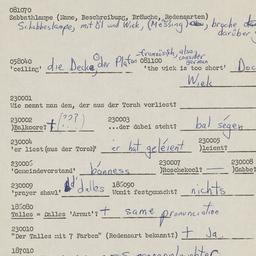 081070
Sabbathlampe (Name, Beschreibung, Bräuche, Redensarten)
Schabbeslampe, mit Öl und Wick, (Messing), brache
darüber
französisch, also
consider
german
058040 081100
'ceiling' die Decke, der Plafon 'the wick is too short' Doc
Wick
230001
Wie nennt man den, der aus der Torah vorliest?
230002 + (???) 230003
[Balkoore]? ...der dabei steht? bal segen
230004 230005
'er liest(aus der Torah)' er hat geleient [leient?
230006 230007 230008
'Gemeindevorstand' banness [Roschekool? [Gabbe
230009 185090
'prayer shawl' dalles Womit festgemacht? nichts
185080
Talles = Dalles 'Armut'? + same pronunciation
230010
"Der Talles mit 7 Farben" (Redensart bekannt?) + Ja,
187010